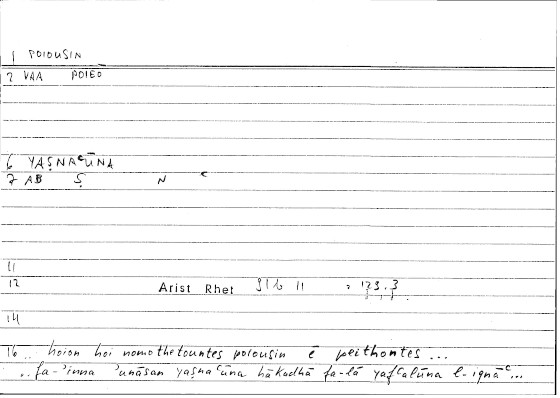 1 POIOUSIN
2 VAA POIEO
6 YAṢNAʿŪNA
7 AB Ṣ N ʿ
11
12 Arist Rhet 91b 11 = 123.3
14
16 .. hoion hoi nomothetountes poiousin ē peithontes ...
.. fa-ʾinna ʾunāsan yaṣnaʿūna hākadhā fa-lā yafʿalūna l-iqnāʿ...